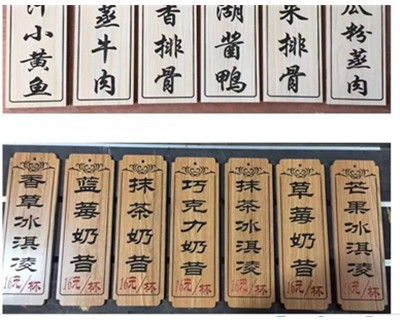 汁小黄鱼
蒸牛肉
香排骨
湖酱鸭
菜排骨
瓜粉蒸肉
香草冰淇凌
16元/杯
蓝莓奶昔
16元/杯
抹茶奶昔
16元/杯
巧克力奶昔
16元/杯
抹茶冰淇凌
16元/杯
草莓奶昔
16元/杯
芒果冰淇凌
16元/杯